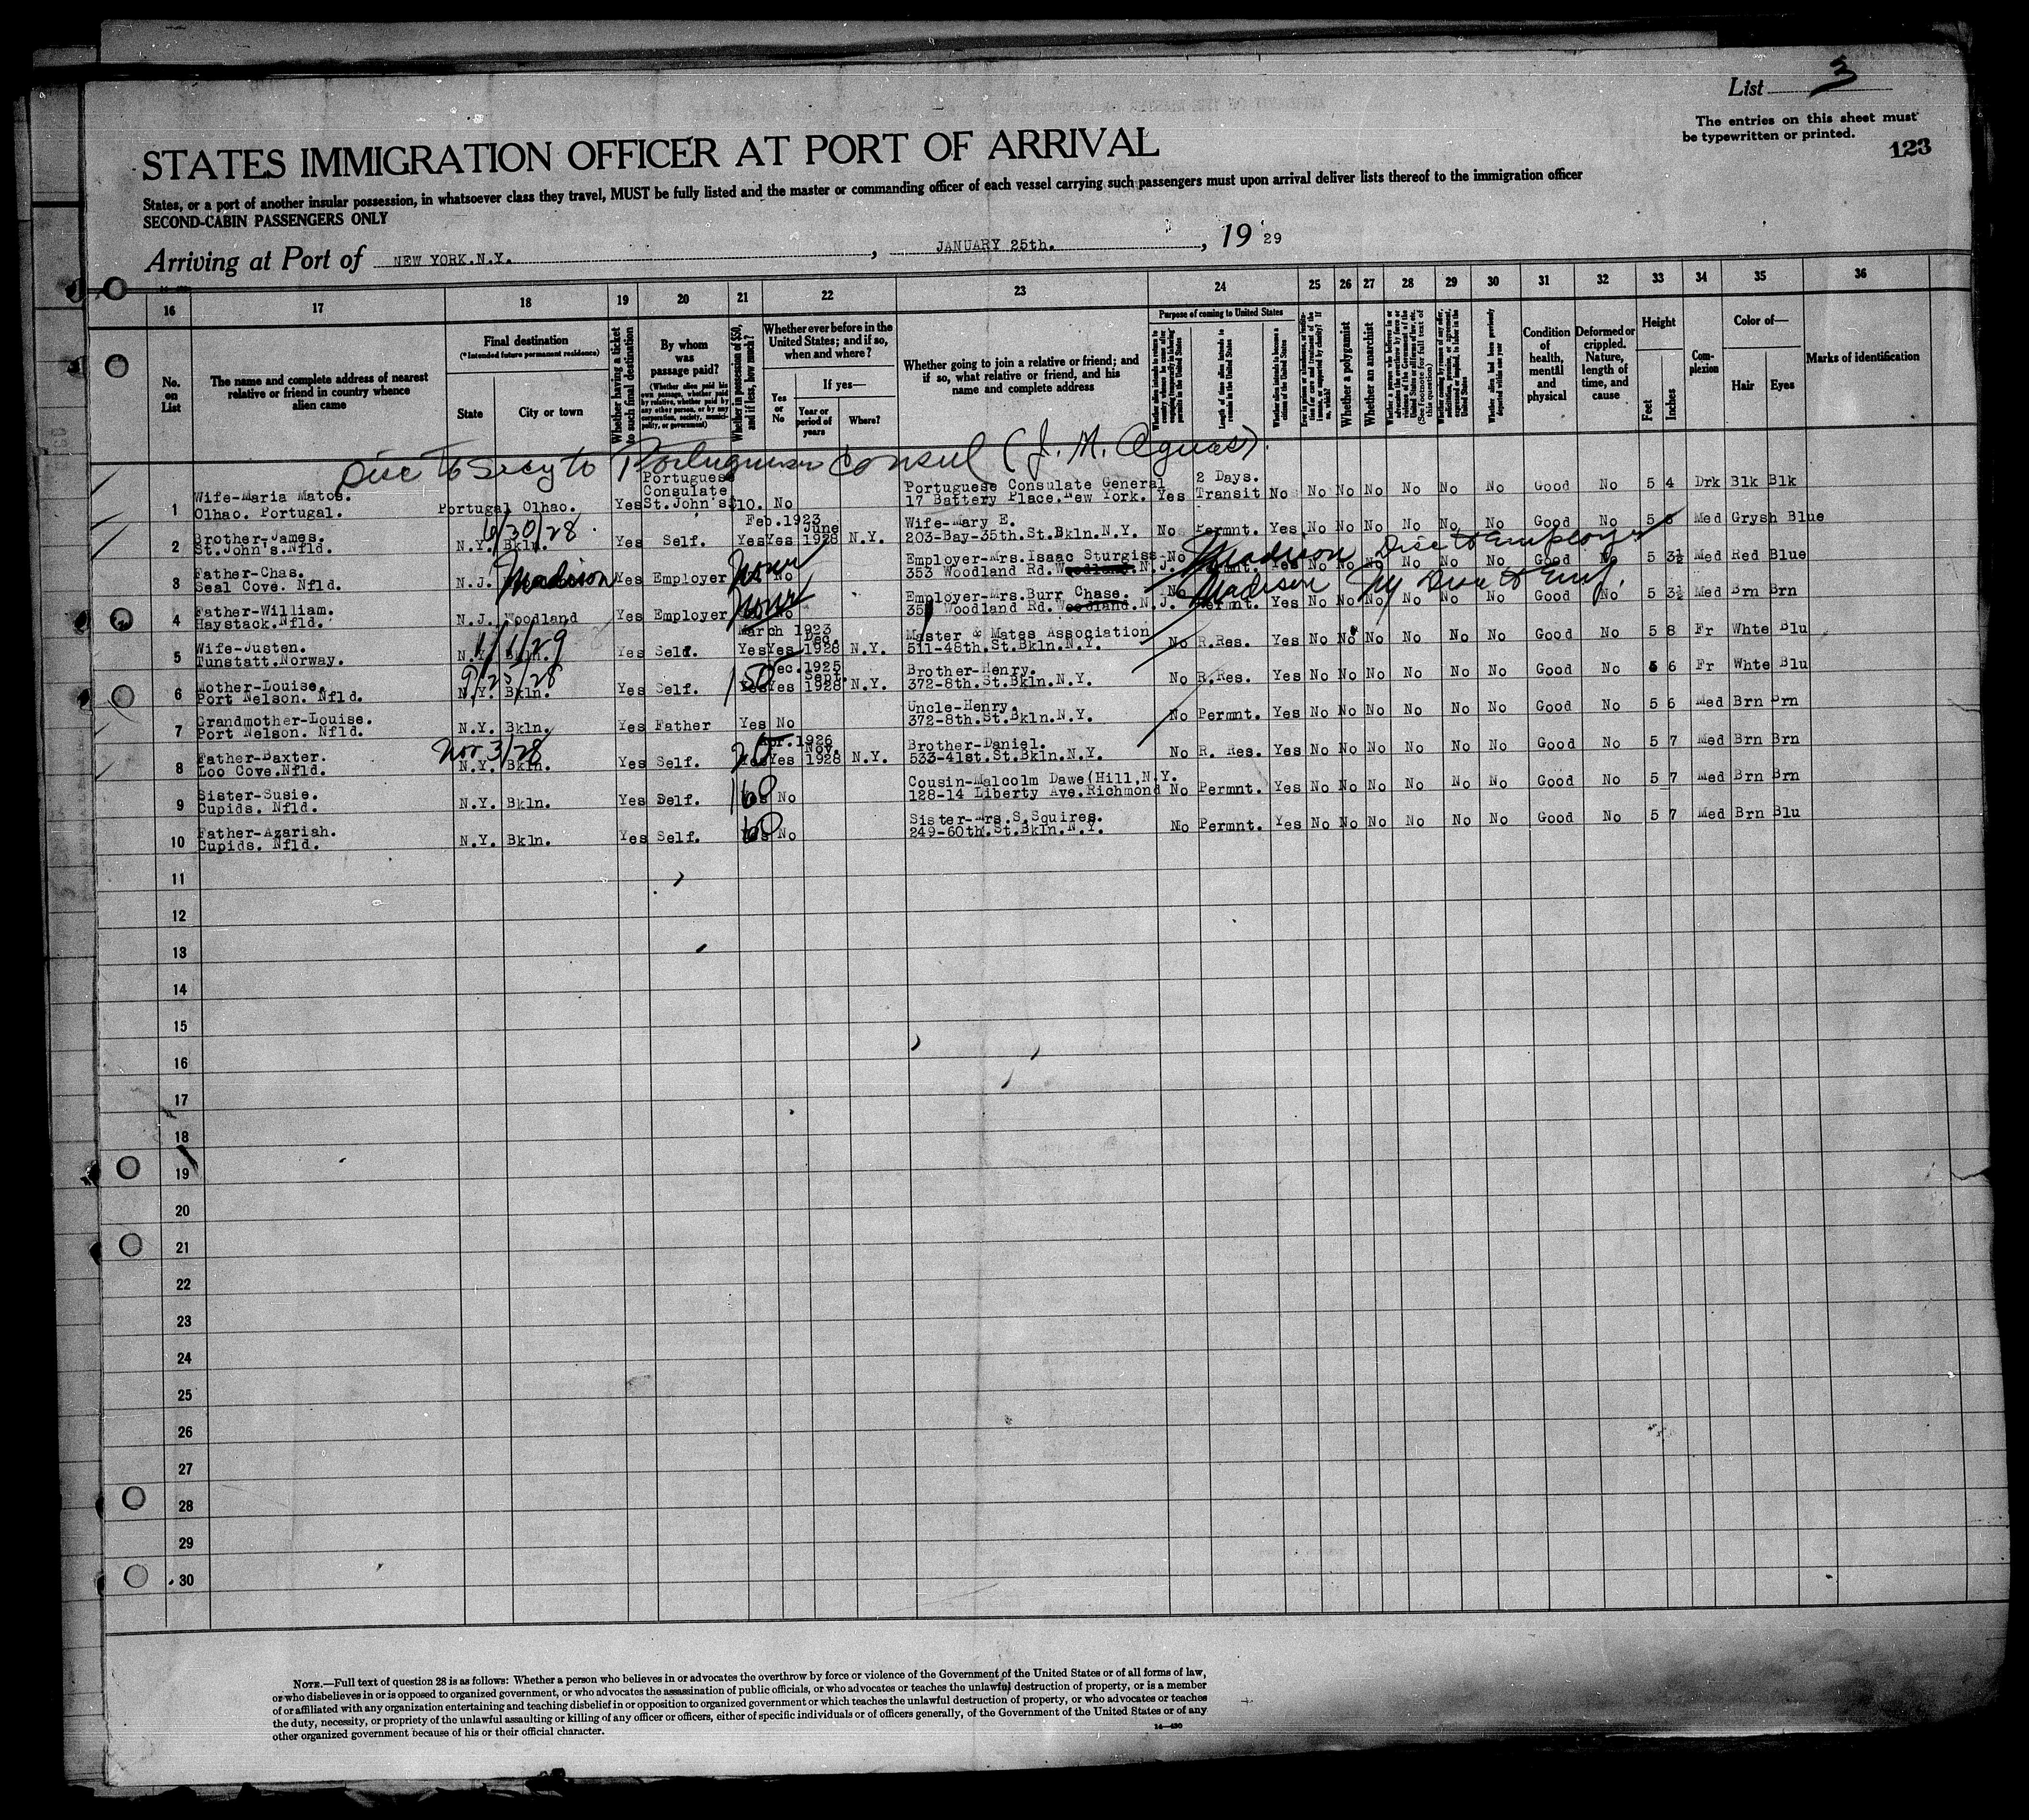 List 3
The entries on this sheet must
be typewritten or printed.
123
STATES IMMIGRATION OFFICER AT PORT OF ARRIVAL
States, or a port of another insular possession, in whatsoever class they travel, MUST be fully listed and the master or commanding officer of each vessel carrying such passengers must upon arrival deliver lists thereof to the immigration officer
SECOND-CABIN PASSENGERS ONLY
Arriving at Port of NEW YORK.N.Y. , JANUARY 25th. , 19 29
16 17 18 19 20 21 22 23 24 25 26 27 28 29 30 31 32 33 34 35 36
No. on List
The name and complete address of nearest relative or friend in country whence alien came
Final destination
(*Intended future permanent residence)
State
City or town
Whether having a ticket to such final destination
By whom was passage paid?
(Whether alien paid his own passage, whether paid by relative, whether paid by any other person, or by any corporation, society, municipality, or government)
Whether in possession of $50, and if less, how much?
Whether ever before in the United States; and if so, when and where?
Yes or No
If yes—
Year or period of years
Where?
Whether going to join a relative or friend; and if so, what relative or friend, and his name and complete address
Purpose of coming to United States
Length of time alien intends to remain in the United States
Whether alien intends to become a citizen of the United States
Whether a polygamist
Whether an anarchist
(See footnote for full text of this question)
Condition of health, mental and physical
Deformed or crippled. Nature, length of time, and cause
Height
Feet
Inches
Complexion
Color of—
Hair
Eyes
Marks of identification
Disc to Secy to Portuguese Consul (J. M. Aguas).
1 Wife-Maria Matos. Olhao. Portugal. Portugal Olhao. Yes Portuguese Consulate St.John's $10. No Portuguese Consulate General 17 Battery Place.New York. Yes 2 Days. Transit No No No No No No No Good No 5 4 Drk Blk Blk
6/30/28
2 Brother-James. St.John's.Nfld. N.Y. Bkln. Yes Self. Yes Yes Feb.1923 June 1928 N.Y. Wife-Mary E. 203-Bay-35th.St.Bkln.N.Y. No Permnt. Yes No No No No No No Good No 5 8 Med Grysh Blue
3 Father-Chas. Seal Cove. Nfld. N.J. Madison Yes Employer None No Employer-Mrs.Isaac Sturgiss 353 Woodland Rd. Woodland.N.J. No Permnt. Yes No No No No No No Good No 5 3½ Med Red Blue
Madison Disc to Employer
4 Father-William. Haystack.Nfld. N.J. Woodland Yes Employer None No Employer-Mrs.Burr Chase. Woodland Rd. Woodland.N.J. No Permnt. Yes No No No No No No Good No 5 3½ Med Brn Brn
Madison NJ Disc to Emp.
1/1/29
5 Wife-Justen. Tunstatt.Norway. N.Y. Bkln. Yes Self. Yes Yes March 1923 Dec. 1928 N.Y. Master & Mates Association 511-48th.St.Bkln.N.Y. No R.Res. Yes No No No No No No Good No 5 8 Fr Whte Blu
9/23/28
6 Mother-Louise. Port Nelson. Nfld. N.Y. Bkln. Yes Self. 150 Yes Yes Dec.1925 Sept. 1928 N.Y. Brother-Henry. 372-8th.St.Bkln.N.Y. No R.Res. Yes No No No No No No Good No 5 6 Fr Whte Blu
7 Grandmother-Louise. Port Nelson. Nfld. N.Y. Bkln. Yes Father Yes No Uncle-Henry. 372-8th.St.Bkln.N.Y. No Permnt. Yes No No No No No No Good No 5 6 Med Brn Brn
Nov 3/28
8 Father-Baxter. Loo Cove.Nfld. N.Y. Bkln. Yes Self. Yes Yes Apr.1926 Nov. 1928 N.Y. Brother-Daniel. 533-41st.St.Bkln.N.Y. No R. Res. Yes No No No No No No Good No 5 7 Med Brn Brn
9 Sister-Susie. Cupids. Nfld. N.Y. Bkln. Yes Self. 160 Yes No Cousin-Malcolm Dawe(Hill.N.Y. 128-14 Liberty Ave.Richmond No Permnt. Yes No No No No No No Good No 5 7 Med Brn Brn
10 Father-Azariah. Cupids. Nfld. N.Y. Bkln. Yes Self. 60 Yes No Sister-Mrs.S.Squires. 249-60th.St.Bkln.N.Y. No Permnt. Yes No No No No No No Good No 5 7 Med Brn Blu
11
12
13
14
15
16
17
18
19
20
21
22
23
24
25
26
27
28
29
30
NOTE.—Full text of question 28 is as follows: Whether a person who believes in or advocates the overthrow by force or violence of the Government of the United States or of all forms of law,
or who disbelieves in or is opposed to organized government, or who advocates the assassination of public officials, or who advocates or teaches the unlawful destruction of property, or is a member
of or affiliated with any organization entertaining and teaching disbelief in or opposition to organized government or which teaches the unlawful destruction of property, or who advocates or teaches
the duty, necessity, or propriety of the unlawful assaulting or killing of any officer or officers, either of specific individuals or of officers generally, of the Government of the United States or of any
other organized government because of his or their official character.
14—430